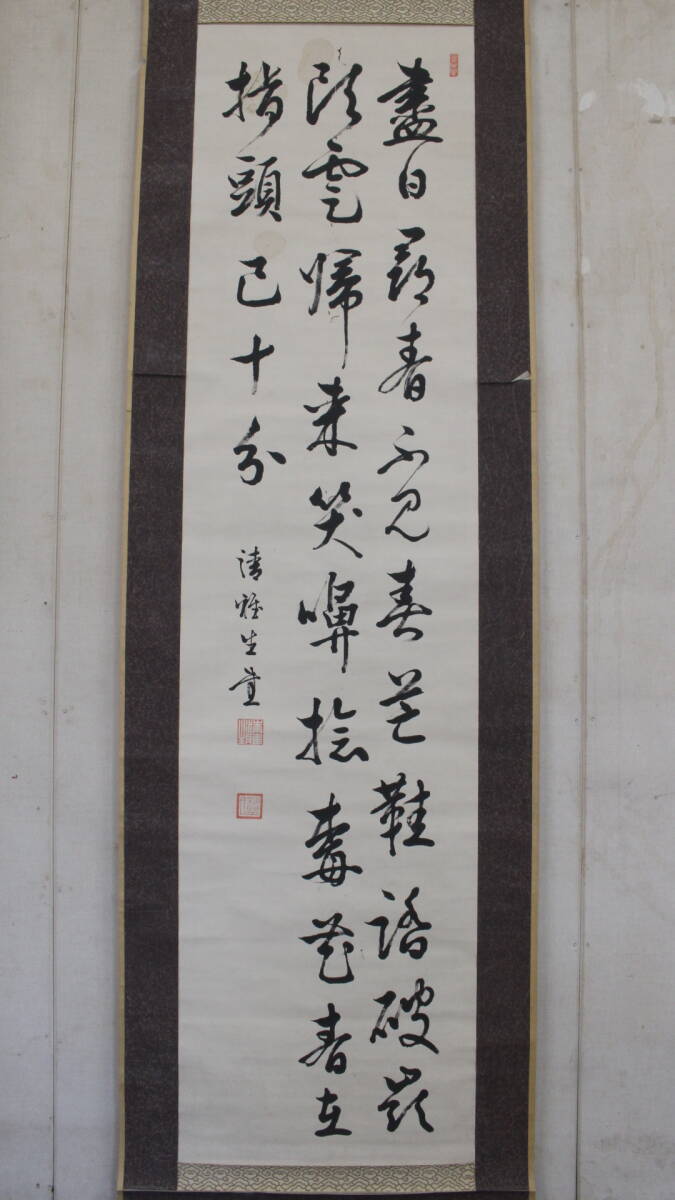 盡日尋春不見春芒鞋踏破嶺
頭雲歸来笑嚊捻梅花春在
指頭已十分
生書